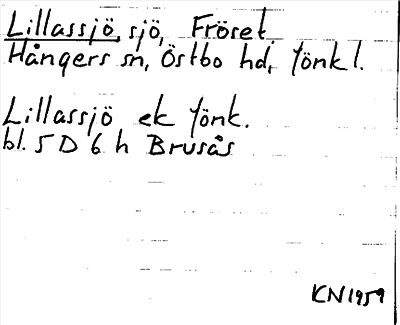 Lillassjö, sjö, Fröset
Hångers sn, Östbo hd, Jönk l.
Lillassjö ek Jönk.
bl. 5 D 6 h Brusås
KN 1959